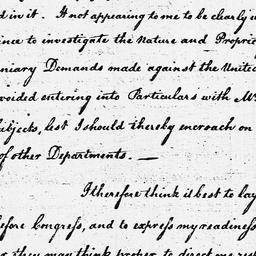 d in it. It not appearing to me to be clearly u
ence to investigate the Nature and Proprie
niary Demands made against the United
voided entering into Particulars with Mr
ubjects, lest I should thereby encroach on
of other Departments. —
I therefore think it best to lay
efore Congress, and to express my readiness
they may think proper to direct me